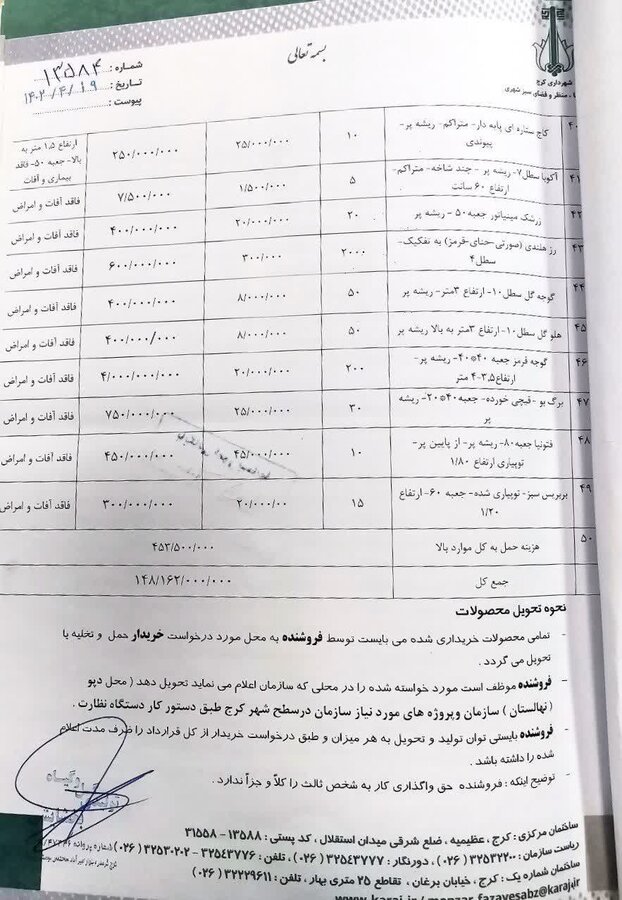 بسمه تعالی
شماره : ۱۳۵۸۴
تاریخ : ۱۴۰۲/۴/۱۹
پیوست :
شهرداری کرج
منظر و فضای سبز شهری
۴۰ کاج ستاره ای پابه دار- متراکم- ریشه پر- پیوندی ۱۰ ۲۵/۰۰۰/۰۰۰ ۲۵۰/۰۰۰/۰۰۰ ارتفاع ۱.۵ متر به بالا- جعبه ۵۰- فاقد بیماری و آفات
۴۱ آکوبا سطل۷- ریشه پر - چند شاخه- متراکم- ارتفاع ۶۰ سانت ۵ ۱/۵۰۰/۰۰۰ ۷/۵۰۰/۰۰۰ فاقد آفات و امراض
۴۲ زرشک مینیاتور جعبه ۵۰ - ریشه پر ۲۰ ۲۰/۰۰۰/۰۰۰ ۴۰۰/۰۰۰/۰۰۰ فاقد آفات و امراض
۴۳ رز هلندی (صورتی-حنای-قرمز) به تفکیک- سطل۴ ۲۰۰۰ ۳۰۰/۰۰۰ ۶۰۰/۰۰۰/۰۰۰ فاقد آفات و امراض
۴۴ گوجه گل سطل۱۰- ارتفاع ۳متر- ریشه پر ۵۰ ۸/۰۰۰/۰۰۰ ۴۰۰/۰۰۰/۰۰۰ فاقد آفات و امراض
۴۵ هلو گل سطل۱۰- ارتفاع ۳متر به بالا ریشه پر ۵۰ ۸/۰۰۰/۰۰۰ ۴۰۰/۰۰۰/۰۰۰ فاقد آفات و امراض
۴۶ گوجه قرمز جعبه ۴۰*۴۰- ریشه پر- ارتفاع۳.۵-۴ متر ۲۰۰ ۲۰/۰۰۰/۰۰۰ ۴/۰۰۰/۰۰۰/۰۰۰ فاقد آفات و امراض
۴۷ برگ بو - قیچی خورده- جعبه ۴۰*۲۰- ریشه پر ۳۰ ۲۵/۰۰۰/۰۰۰ ۷۵۰/۰۰۰/۰۰۰ فاقد آفات و امراض
۴۸ فتونیا جعبه۸۰- ریشه پر- از پایین پر- توپیاری ارتفاع ۱/۸۰ ۱۰ ۴۵/۰۰۰/۰۰۰ ۴۵۰/۰۰۰/۰۰۰ فاقد آفات و امراض
۴۹ بربریس سبز- توپیاری شده- جعبه ۶۰- ارتفاع ۱/۲۰ ۱۵ ۲۰/۰۰۰/۰۰ ۳۰۰/۰۰۰/۰۰۰ فاقد آفات و امراض
۵۰ هزینه حمل به کل موارد بالا ۴۵۳/۵۰۰/۰۰۰
جمع کل ۱۴۸/۱۶۲/۰۰۰/۰۰۰
نحوه تحویل محصولات
- تمامی محصولات خریداری شده می بایست توسط فروشنده به محل مورد درخواست خریدار حمل و تخلیه یا
تحویل می گردد .
- فروشنده موظف است مورد خواسته شده را در محلی که سازمان اعلام می نماید تحویل دهد ( محل دپو
( نهالستان ) سازمان وپروژه های مورد نیاز سازمان درسطح شهر کرج طبق دستور کار دستگاه نظارت .
- فروشنده بایستی توان تولید و تحویل به هر میزان و طبق درخواست خریدار از کل قرارداد را ظرف مدت اعلام
شده را داشته باشد .
- توضیح اینکه : فروشنده حق واگذاری کار به شخص ثالث را کلاً و جزأ ندارد .
ساختمان مرکزی : کرج ، عظیمیه ، ضلع شرقی میدان استقلال ، کد پستی : ۱۳۵۸۸ - ۳۱۵۵۸
ریاست سازمان : ۳۲۵۳۲۲۰۰ ( ۰۲۶ ) ، دورنگار : ۳۲۵۴۳۷۷۷ ( ۰۲۶ ) ، تلفن : ۳۲۵۴۳۷۷۶ - ۳۲۵۳۰۲۰۲ ( ۰۲۶ )
ساختمان شماره یک : کرج ، خیابان برغان ، تقاطع ۲۵ متری بهار ، تلفن : ۳۲۲۲۹۶۱۱ ( ۰۲۶ )